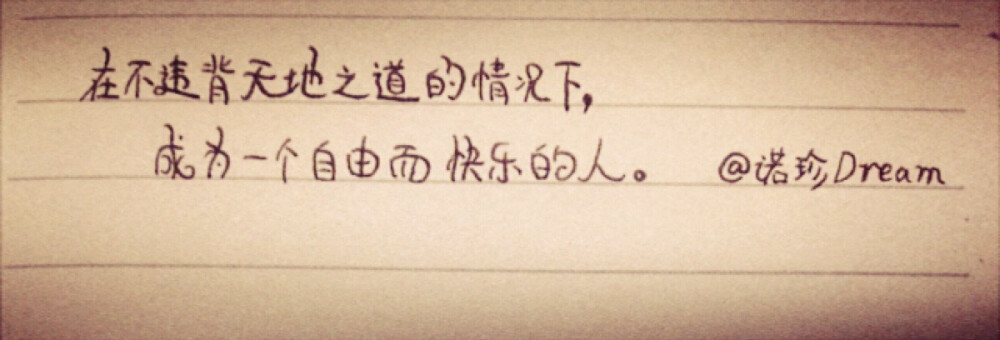 在不违背天地之道的情况下,
成为一个自由而快乐的人。 @诺珍Dream